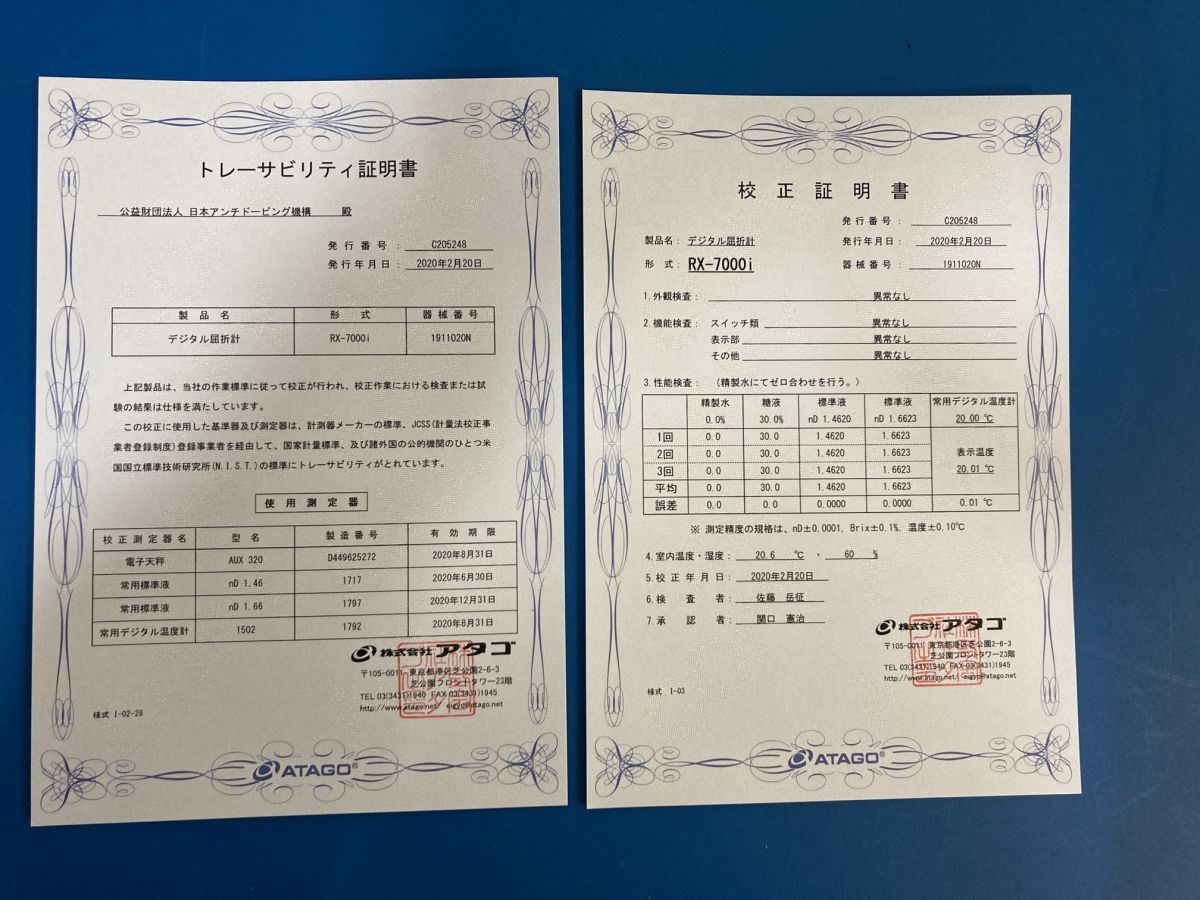 トレーサビリティ証明書
公益財団法人 日本アンチドーピング機構 殿
発行番号: C205248
発行年月日: 2020年2月20日
製品名 形式 器械番号
デジタル屈折計 RX-7000i 1911020N
上記製品は、当社の作業標準に従って校正が行われ、校正作業における検査または試
験の結果は仕様を満たしています。
この校正に使用した基準器及び測定器は、計測器メーカーの標準、JCSS(計量法校正事
業者登録制度)登録事業者を経由して、国家計量標準、及び諸外国の公的機関のひとつ米
国国立標準技術研究所(N.I.S.T.)の標準にトレーサビリティがとれています。
使用測定器
校正測定器名 型名 製造番号 有効期限
電子天秤 AUX 320 D449625272 2020年8月31日
常用標準液 nD 1.46 1717 2020年6月30日
常用標準液 nD 1.66 1797 2020年12月31日
常用デジタル温度計 1502 1792 2020年8月31日
株式会社アタゴ
〒105-0011 東京都港区芝公園2-6-3
芝公園フロントタワー23階
TEL 03(3431)1940 FAX 03(3431)1945
http://www.atago.net/ eigyo@atago.net
様式 I-02-28
ATAGO®
校正証明書
発行番号: C205248
製品名: デジタル屈折計 発行年月日: 2020年2月20日
形式: RX-7000i 器械番号: 1911020N
1.外観検査: 異常なし
2.機能検査: スイッチ類 異常なし
表示部 異常なし
その他 異常なし
3.性能検査: (精製水にてゼロ合わせを行う。)
精製水 糖液 標準液 標準液 常用デジタル温度計
0.0% 30.0% nD 1.4620 nD 1.6623 20.00 ℃
1回 0.0 30.0 1.4620 1.6623
2回 0.0 30.0 1.4620 1.6623 表示温度
3回 0.0 30.0 1.4620 1.6623 20.01 ℃
平均 0.0 30.0 1.4620 1.6623
誤差 0.0 0.0 0.0000 0.0000 0.01 ℃
※ 測定精度の規格は、nD±0.0001, Brix±0.1%, 温度±0.10℃
4.室内温度・湿度: 20.6 ℃ ・ 60 %
5.校正年月日: 2020年2月20日
6.検査者: 佐藤 岳征
7.承認者: 関口 憲治
株式会社アタゴ
〒105-0011 東京都港区芝公園2-6-3
芝公園フロントタワー23階
TEL 03(3431)1940 FAX 03(3431)1945
http://www.atago.net/ eigyo@atago.net
様式 I-03
ATAGO®